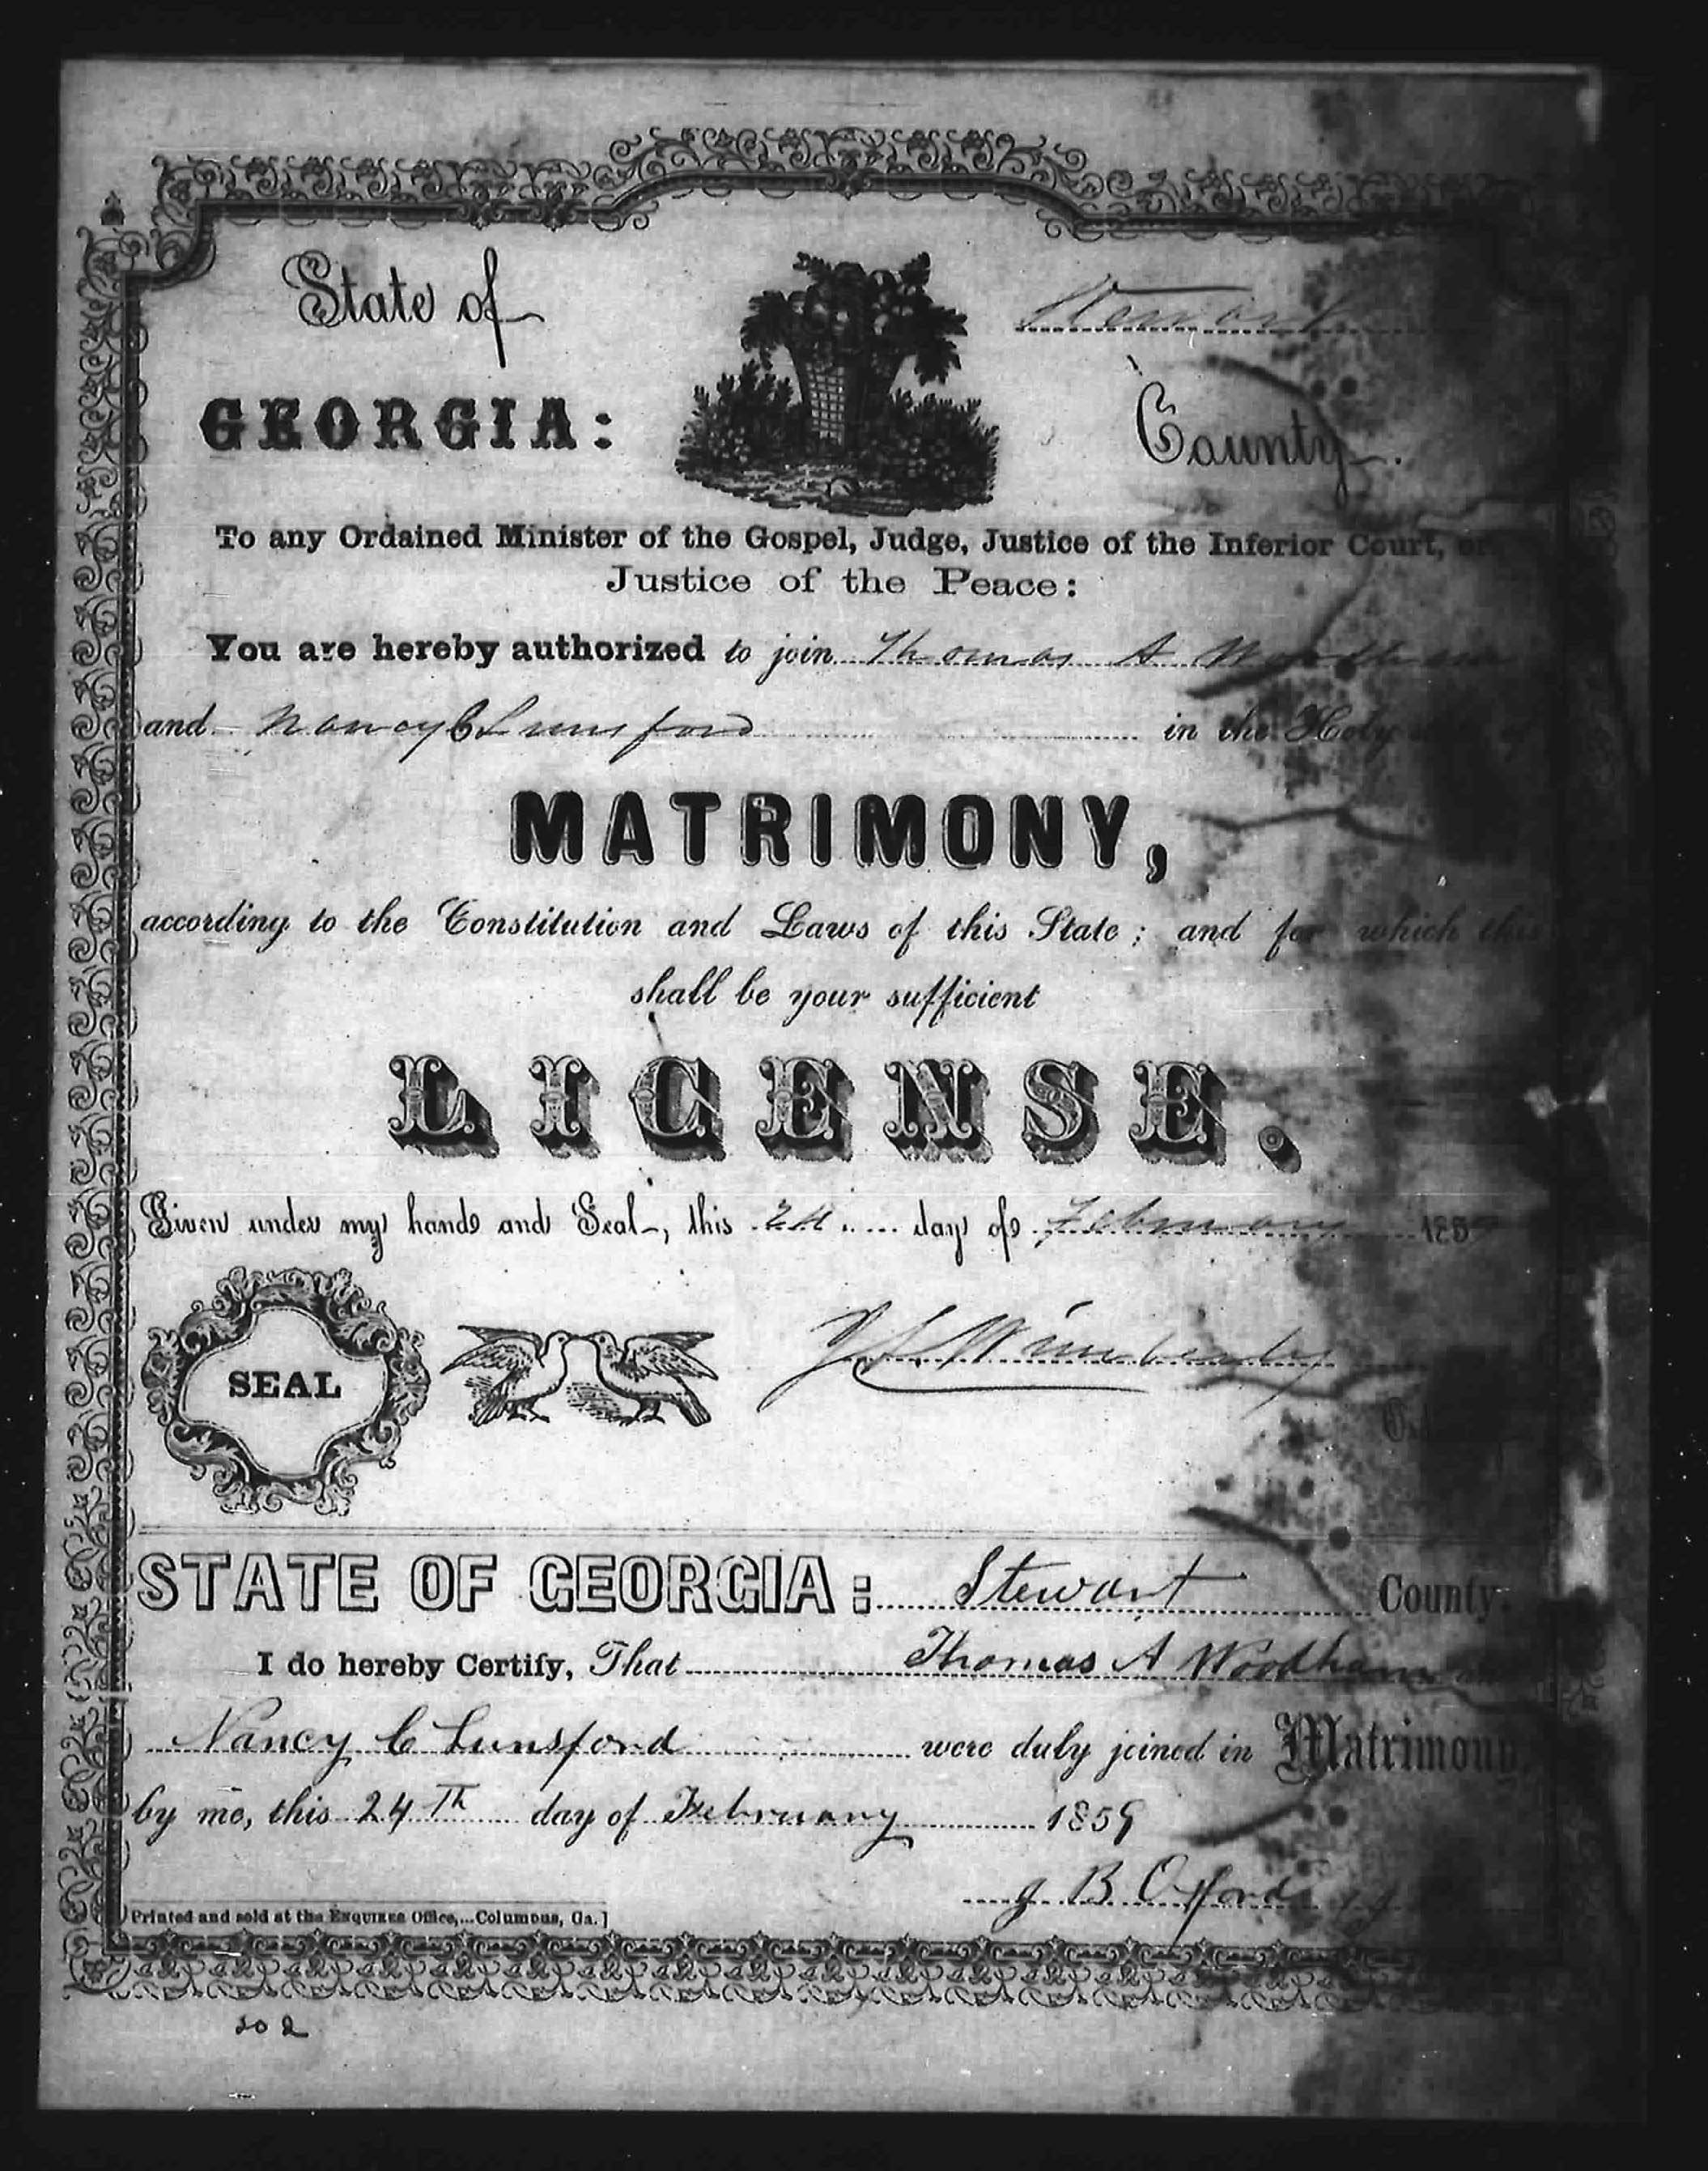 State of
Stewart
GEORGIA:
County.
To any Ordained Minister of the Gospel, Judge, Justice of the Inferior Court, or
Justice of the Peace:
You are hereby authorized to join Thomas A Woodham
and Nancy C Lunsford in the Holy
MATRIMONY,
according to the Constitution and Laws of this State; and for which this
shall be your sufficient
LICENSE.
Given under my hand and Seal, this 24 day of February 185
SEAL
Wimberly
STATE OF GEORGIA: Stewart County.
I do hereby Certify, That Thomas A Woodham and
Nancy C Lunsford were duly joined in Matrimony
by me, this 24Th day of February 1859
J B Oxford
Printed and sold at the ENQUIRER Office,...Columbus, Ga.]
202